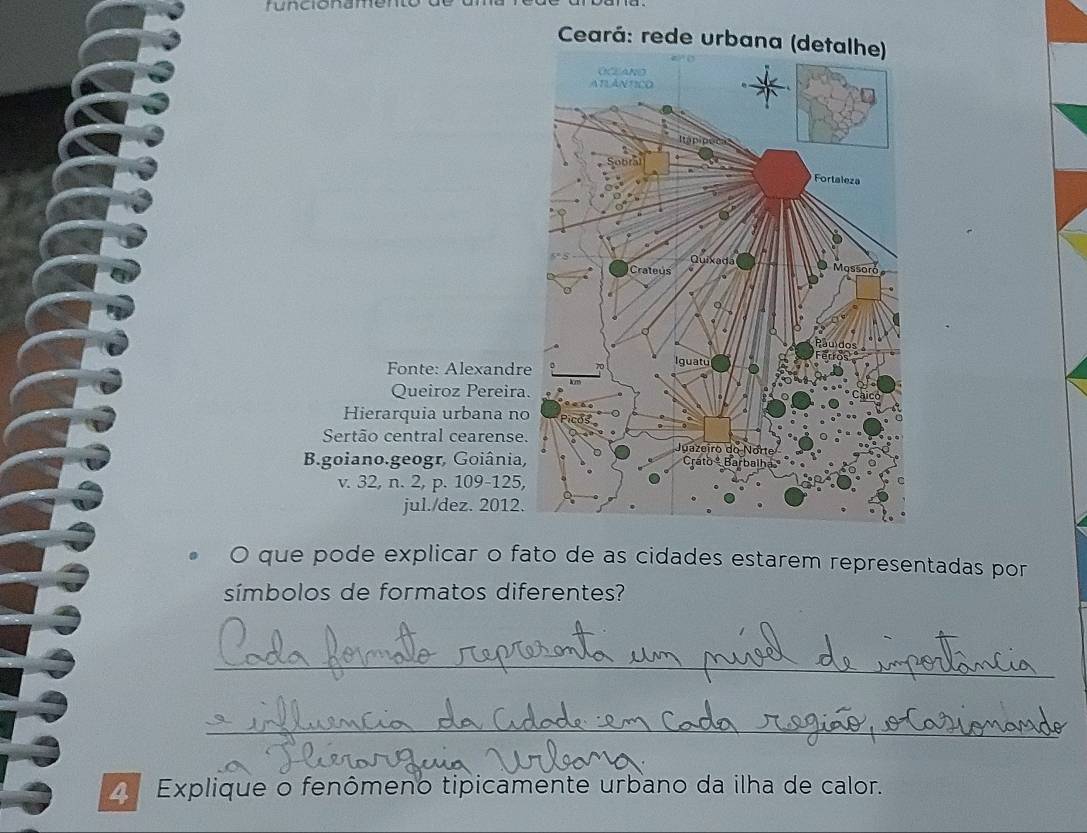 Ceará: rede urbana (detalhe)
OCEANO
ATLÂNTICO
Itapipoca
Sobral
Fortaleza
5° S
Quixadá
Crateús
Mossoró
Pau dos
Ferros
Iguatu
0 70
km
Caicó
Picos
Juazeiro do Norte
Crato - Barbalha
Fonte: Alexandre
Queiroz Pereira.
Hierarquia urbana no
Sertão central cearense.
B.goiano.geogr, Goiânia,
v. 32, n. 2, p. 109-125,
jul./dez. 2012.
• O que pode explicar o fato de as cidades estarem representadas por
símbolos de formatos diferentes?
Cada formato representa um nível de importância
e influencia da Cidade em cada região, ocasionando
a Hierarquia Urbana.
4 Explique o fenômeno tipicamente urbano da ilha de calor.